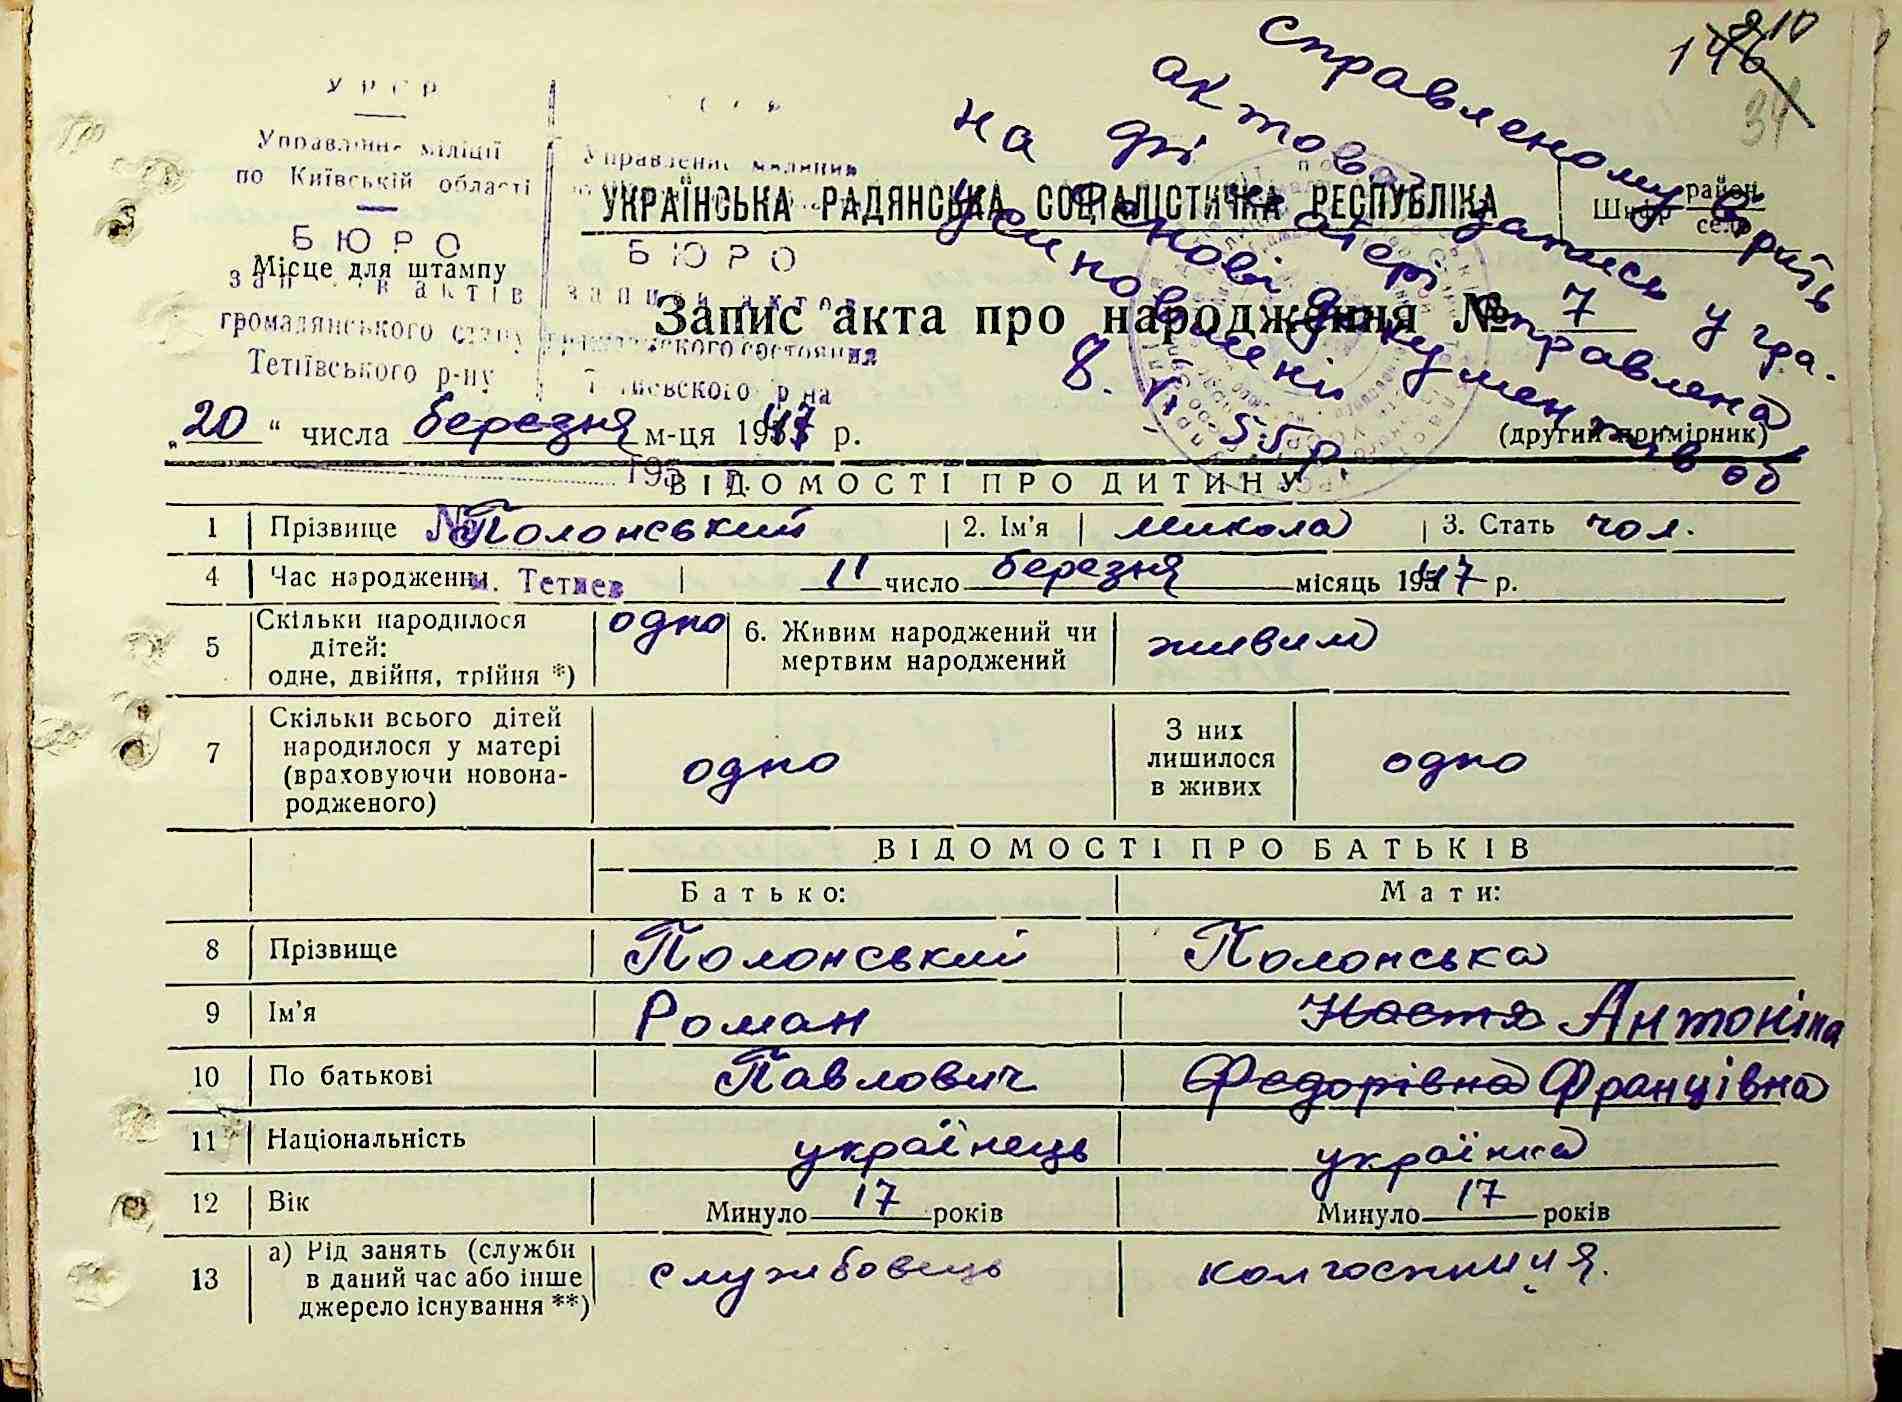 210
146
34
справленому вірить
актовий запис у гр.
на матері справлена
на документів об
усиновленні
8. 55 р.
У Р С Р
Управління міліції
по Київській області
БЮРО
Місце для штампу
актів
громадянського стану
Тетіївського р-ну
Управление милиции
БЮРО
записи актов
гражданского состояния
р-на
УКРАЇНСЬКА РАДЯНСЬКА СОЦІАЛІСТИЧНА РЕСПУБЛІКА
Шифр район
село
Запис акта про народження № 7
„20“ числа березня м-ця 1947 р.
(другий примірник)
195
ВІДОМОСТІ ПРО ДИТИНУ
1 Прізвище № Полонський 2. Ім'я Микола 3. Стать чол.
4 Час народження м. Тетиев 11 число березня місяць 1947 р.
5 Скільки народилося дітей: одне, двійня, трійня *) одно 6. Живим народжений чи мертвим народжений живим
7 Скільки всього дітей народилося у матері (враховуючи новонародженого) одно З них лишилося в живих одно
ВІДОМОСТІ ПРО БАТЬКІВ
Батько: Мати:
8 Прізвище Полонський Полонська
9 Ім'я Роман Настя Антоніна
10 По батькові Павлович Федорівна Францівна
11 Національність українець українка
12 Вік Минуло 17 років Минуло 17 років
13 а) Рід занять (служби в даний час або інше джерело існування **) службовець колгоспниця.